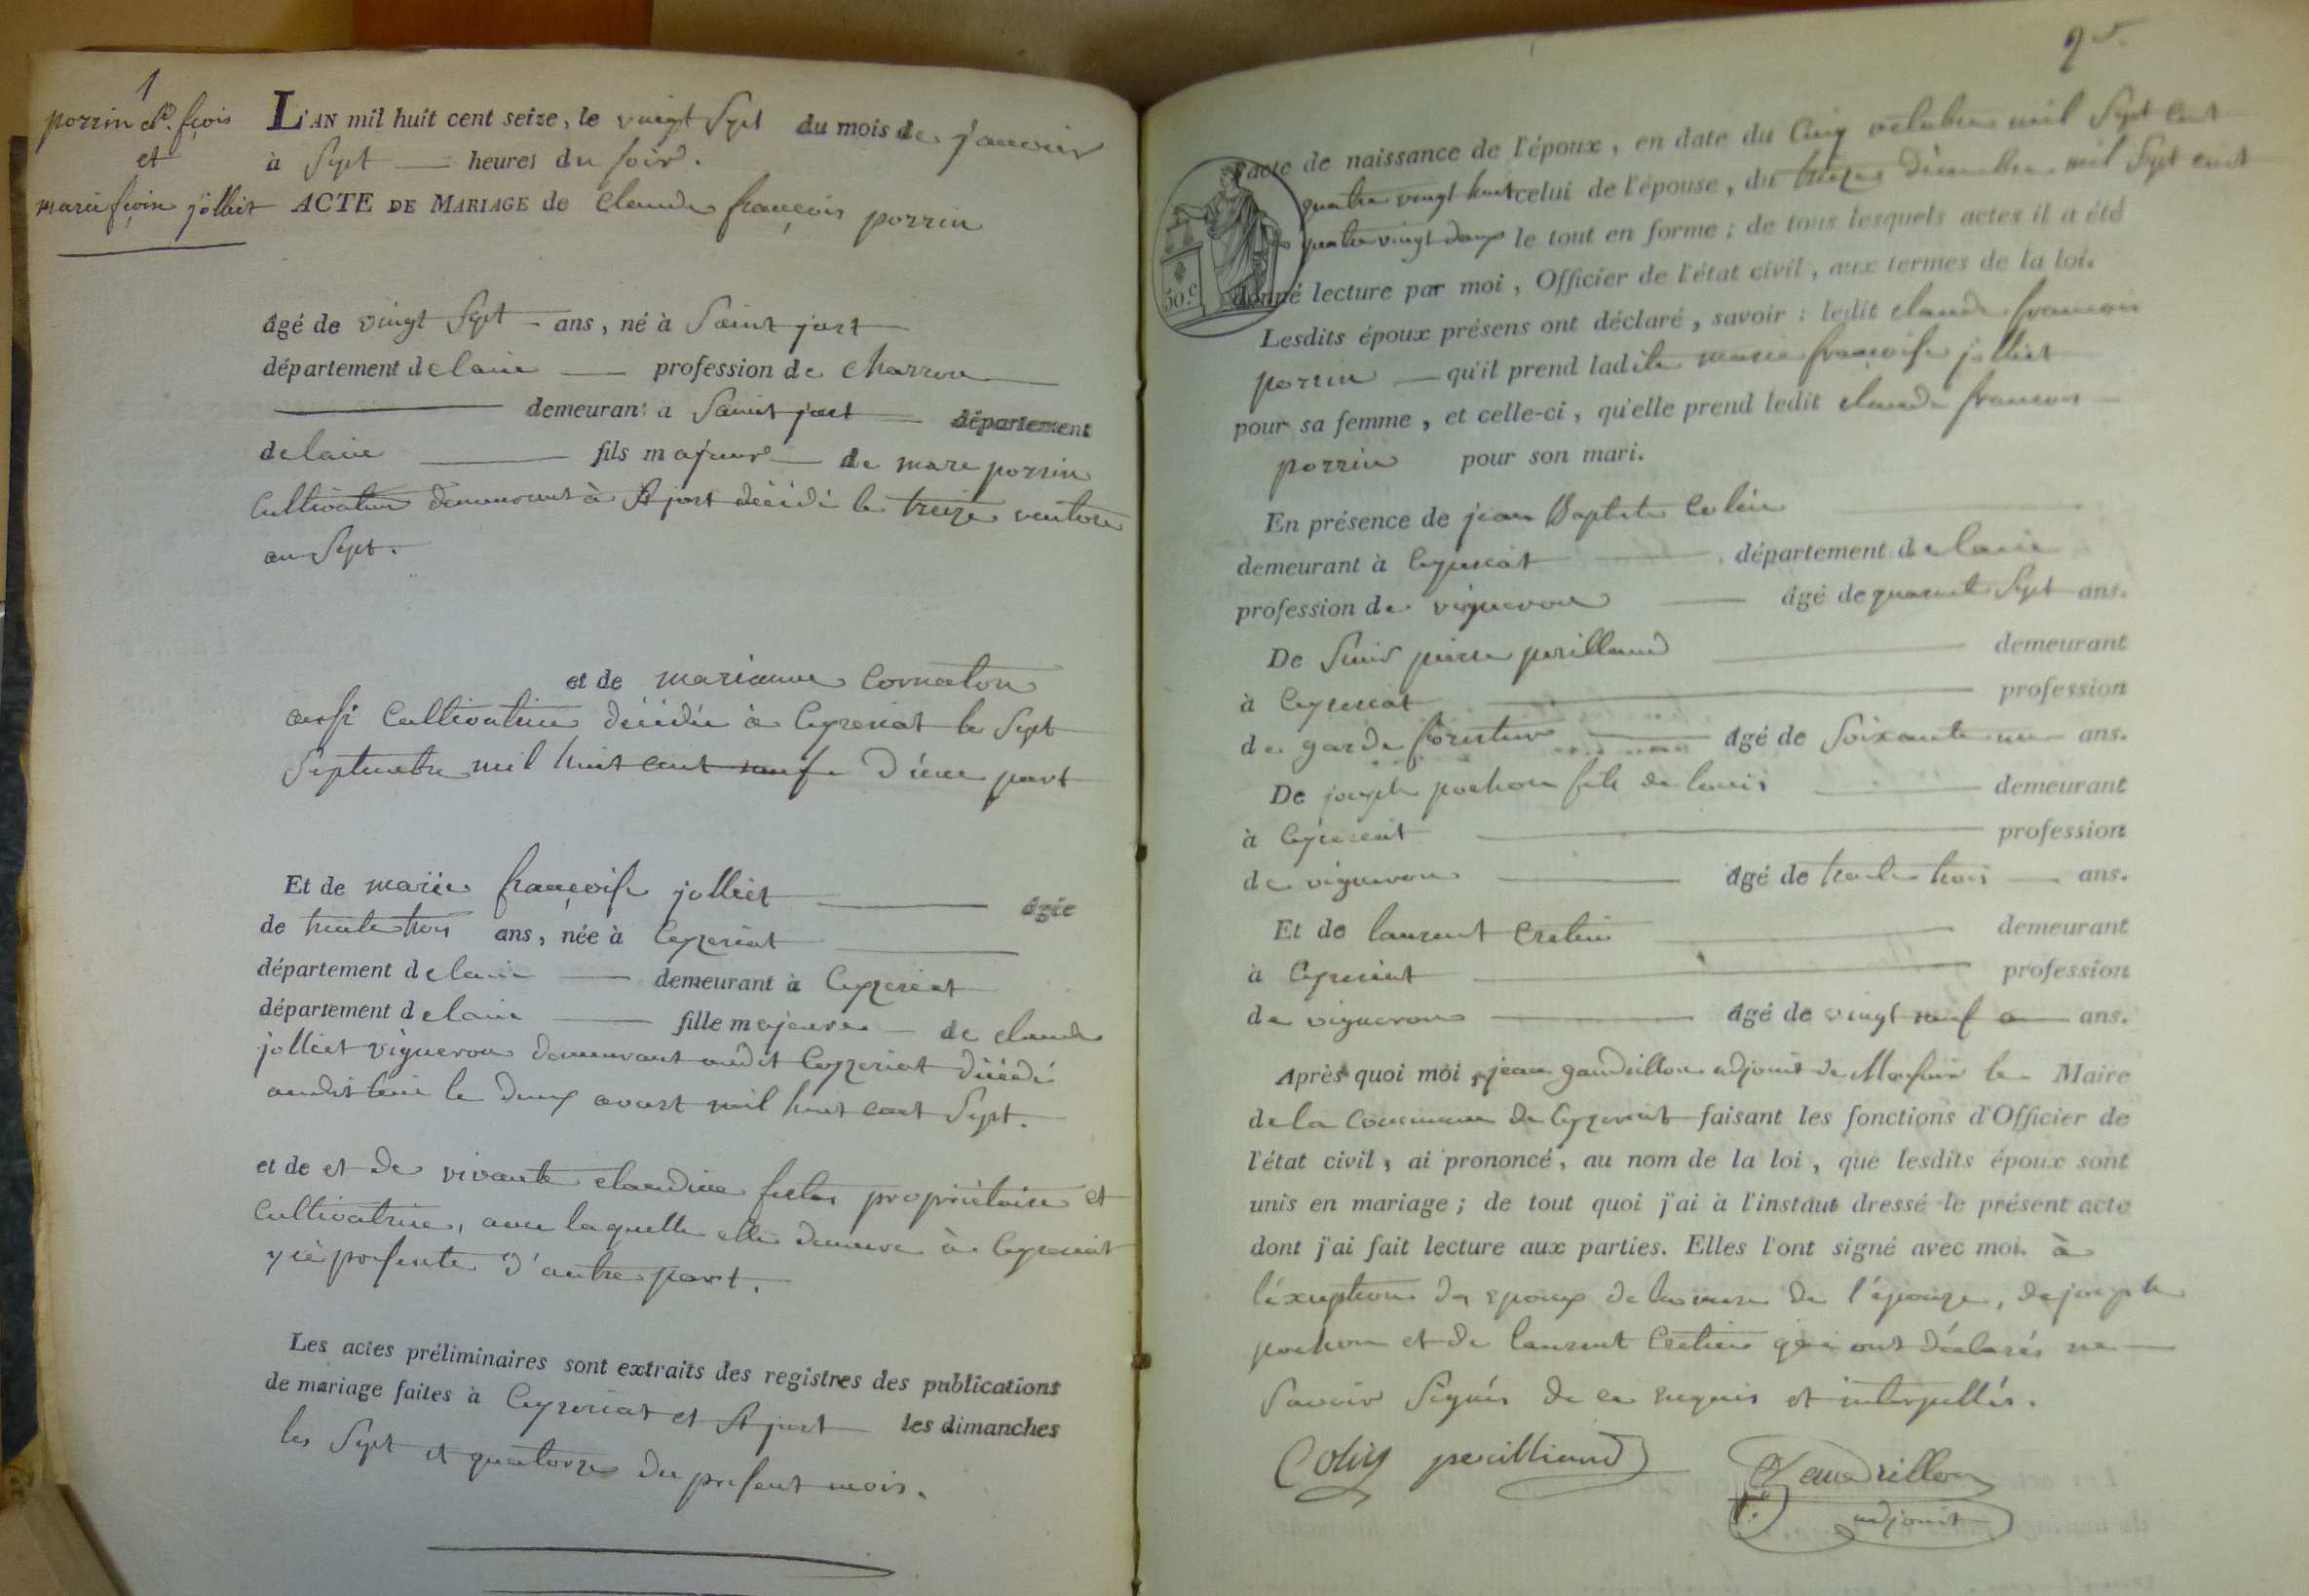 1
porrin cl.de fçois
et
marie fçoise jolliet
L'AN mil huit cent seize, le vingt Sept du mois de janvier
à Sept heures du soir.
ACTE DE MARIAGE de Claude françois porrin
âgé de vingt Sept ans, né à Saint just
département de lain profession de Charron
demeurant a Saint just département
de lain fils majeur de marc porrin
Cultivateur demeurant à St just décédé le treize ventose
an Sept.
et de marianne Cornaton
aussi Cultivatrice décédée à Ceyzeriat le Sept
Septembre mil huit cent neuf d'une part
Et de marie françoise jolliet âgée
de trente trois ans, née à Ceyzeriat
département de lain demeurant à Ceyzeriat
département de lain fille majeure de claude
jolliet vigneron demeurant audit Ceyzeriat décédé
audit lieu le deux aoust mil huit cent Sept.
et de et de vivante claudine propriétaire et
Cultivatrice, avec laquelle elle demeure à Ceyzeriat
y ici présente d'autre part.
Les actes préliminaires sont extraits des registres des publications
de mariage faites à Ceyzeriat et St just les dimanches
les Sept et quatorze du présent mois.
l'acte de naissance de l'époux, en date du Cinq octobre mil Sept cent
quatre vingt huit celui de l'épouse, du treize décembre mil Sept cent
quatre vingt deux le tout en forme ; de tous lesquels actes il a été
50.c
donné lecture par moi, Officier de l'état civil, aux termes de la loi.
Lesdits époux présens ont déclaré, savoir : ledit claude francois
porrin qu'il prend ladite marie françoise jolliet
pour sa femme, et celle-ci, qu'elle prend ledit claude francois
porrin pour son mari.
En présence de jean Baptiste Colin
demeurant à Ceyzeriat département de lain
profession de vigneron âgé de quarante Sept ans.
De Sieur pierre perilliand demeurant
à Ceyzeriat profession
de garde forestier âgé de Soixante un ans.
De joseph pochon fils de louis demeurant
à Ceyzeriat profession
de vigneron âgé de trente trois ans.
Et de laurent Cretin demeurant
à Ceyzeriat profession
de vigneron âgé de vingt neuf ans.
Après quoi moi, jean gaudrillon adjoint de Monsieur le Maire
de la Commune de Ceyzeriat faisant les fonctions d'Officier de
l'état civil, ai prononcé, au nom de la loi, que lesdits époux sont
unis en mariage ; de tout quoi j'ai à l'instant dressé le présent acte
dont j'ai fait lecture aux parties. Elles l'ont signé avec moi. à
l'exeption des epoux de la mere de l'épouze, de joseph
pochon et de laurent Cretin qui ont déclarés ne
Savoir Signés de ce requis et interpellés.
Colin perilliand Gaudrillon
adjoint